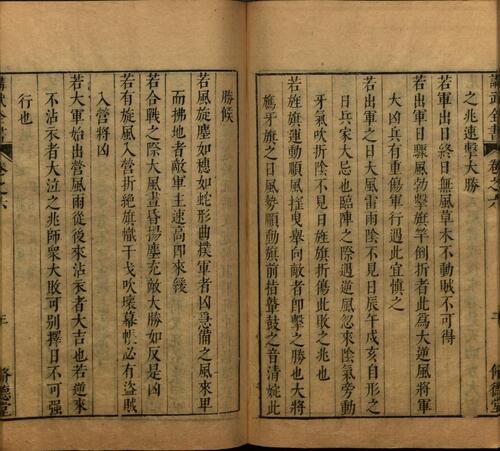 之兆速擊大勝
若軍出日終日無風草木不動賊不可得
若出軍日驟風勃擊旗竿倒折者此為大逆風將軍
大凶兵有重傷軍行遇此宜慎之
若出軍之日大風雷雨陰不見日辰午戌亥自形之
日兵家大忌也臨陣之際遇逆風忽來陰氣旁動
牙氣吹折陰不見日旌旗折傷此敗之兆也
若旌旗運動順風搖曳舉向敵者即擊之勝也大將
旗牙旗之日風勢順動旗前指鼙鼓之音清
此
勝候
若風旋塵如穗如蛇形曲撲軍者凶急備之風來卑
而拂地者敵軍主速高即來緩
若合戰之際大風晝昏揚塵充敵大勝如反是凶
若有旋風入營折絶旗幟干戈吹壞幕帳必有盜賊
入營將凶
若大軍始出營風雨從後來沾衣者大吉也若逆來
不沾衣者大泣之兆師衆大敗可别擇日不可强
行也
講武全書
卷之六
脩德堂